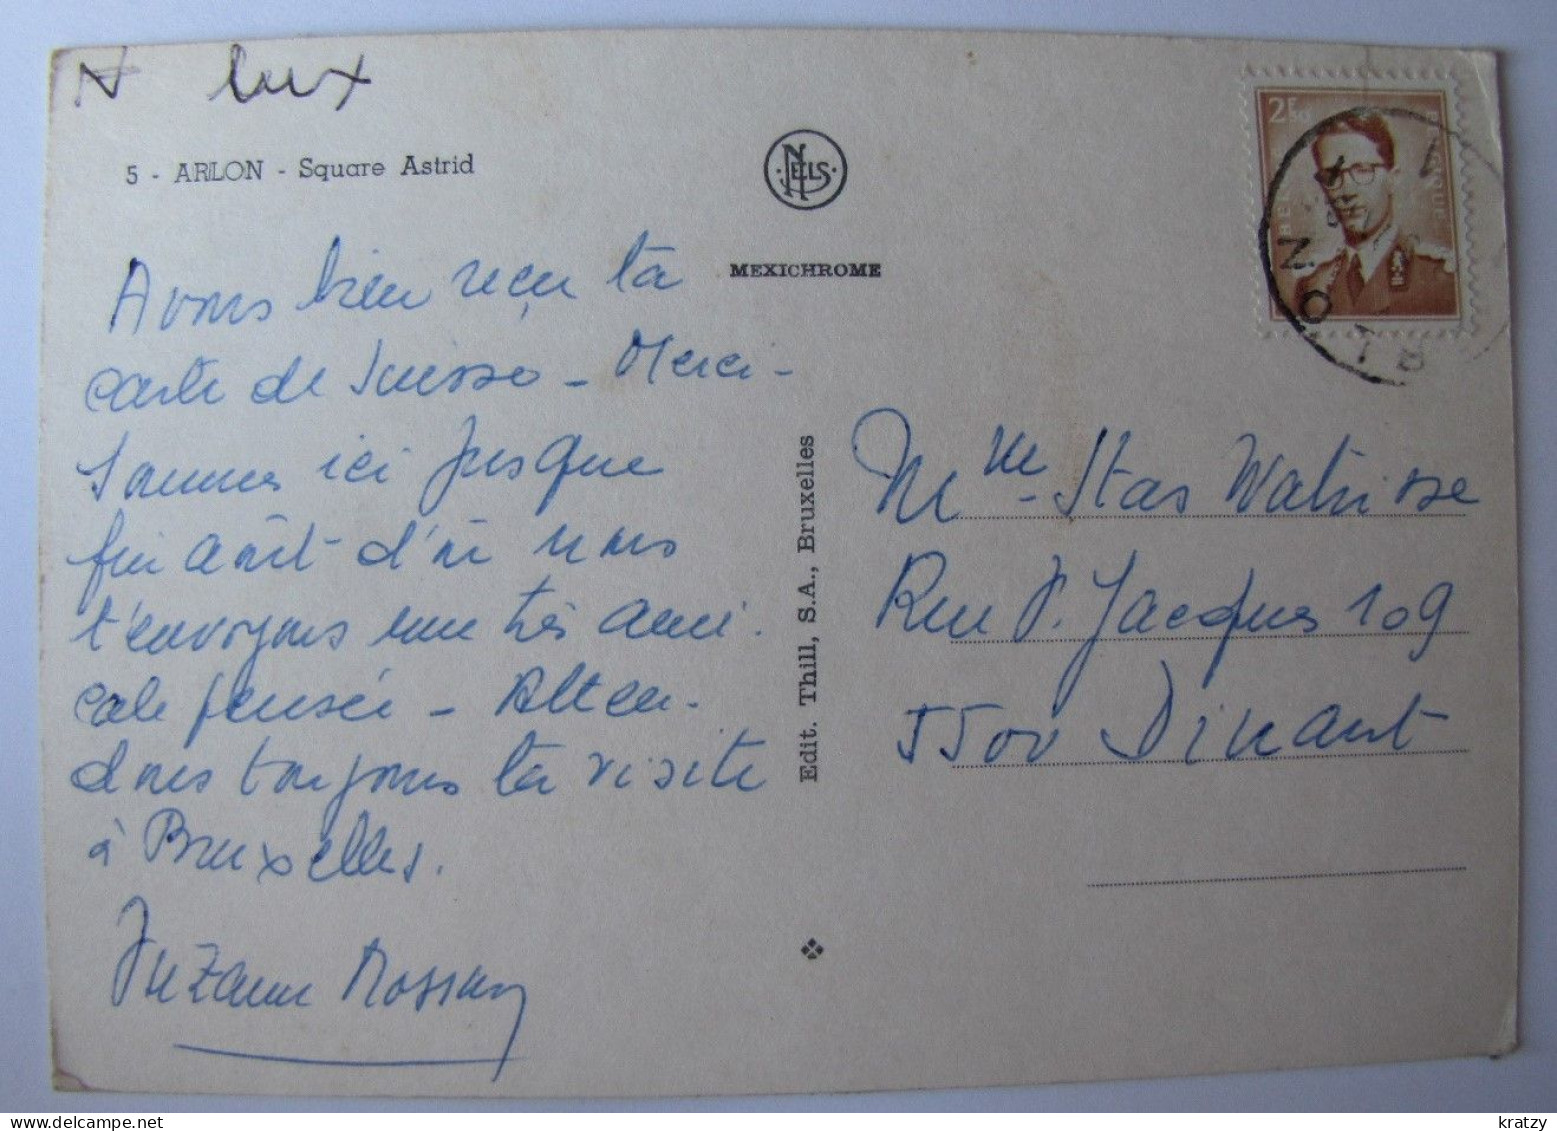 N lux
5 - ARLON - Square Astrid
NELS
MEXICHROME
2F50
BELGIQUE
Avons bien reçu ta
carte de Suisse - Merci -
Sommes ici jusque
fin août d'où nous
t'envoyons une très ami-
cale pensée - Atten-
dons toujours ta visite
à Bruxelles.
Suzanne
Edit. Thill, S.A., Bruxelles
Mme Stas Watrisse
Rue J. Jacques 109
5500 Dinant
kratzy
delcampe.net